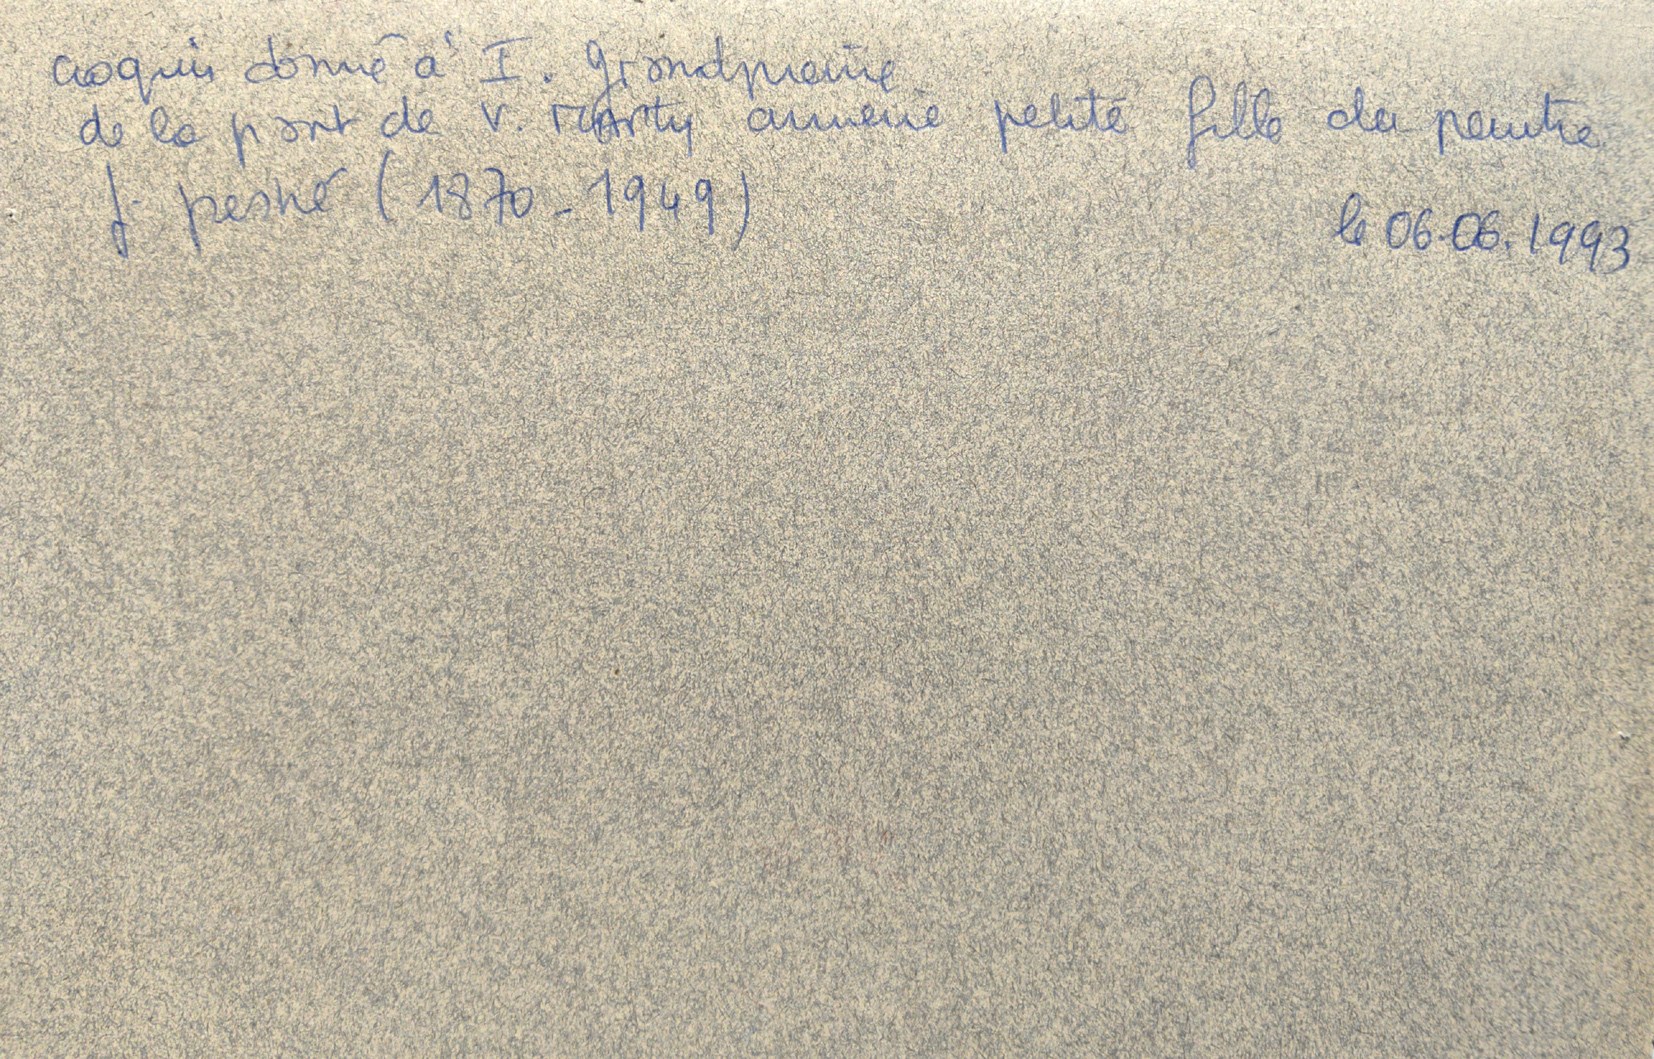 croquis donné à I. Grandprairie
de la part de V. Marty arrière petite fille du peintre
J. peské (1870-1949)
le 06.06.1993